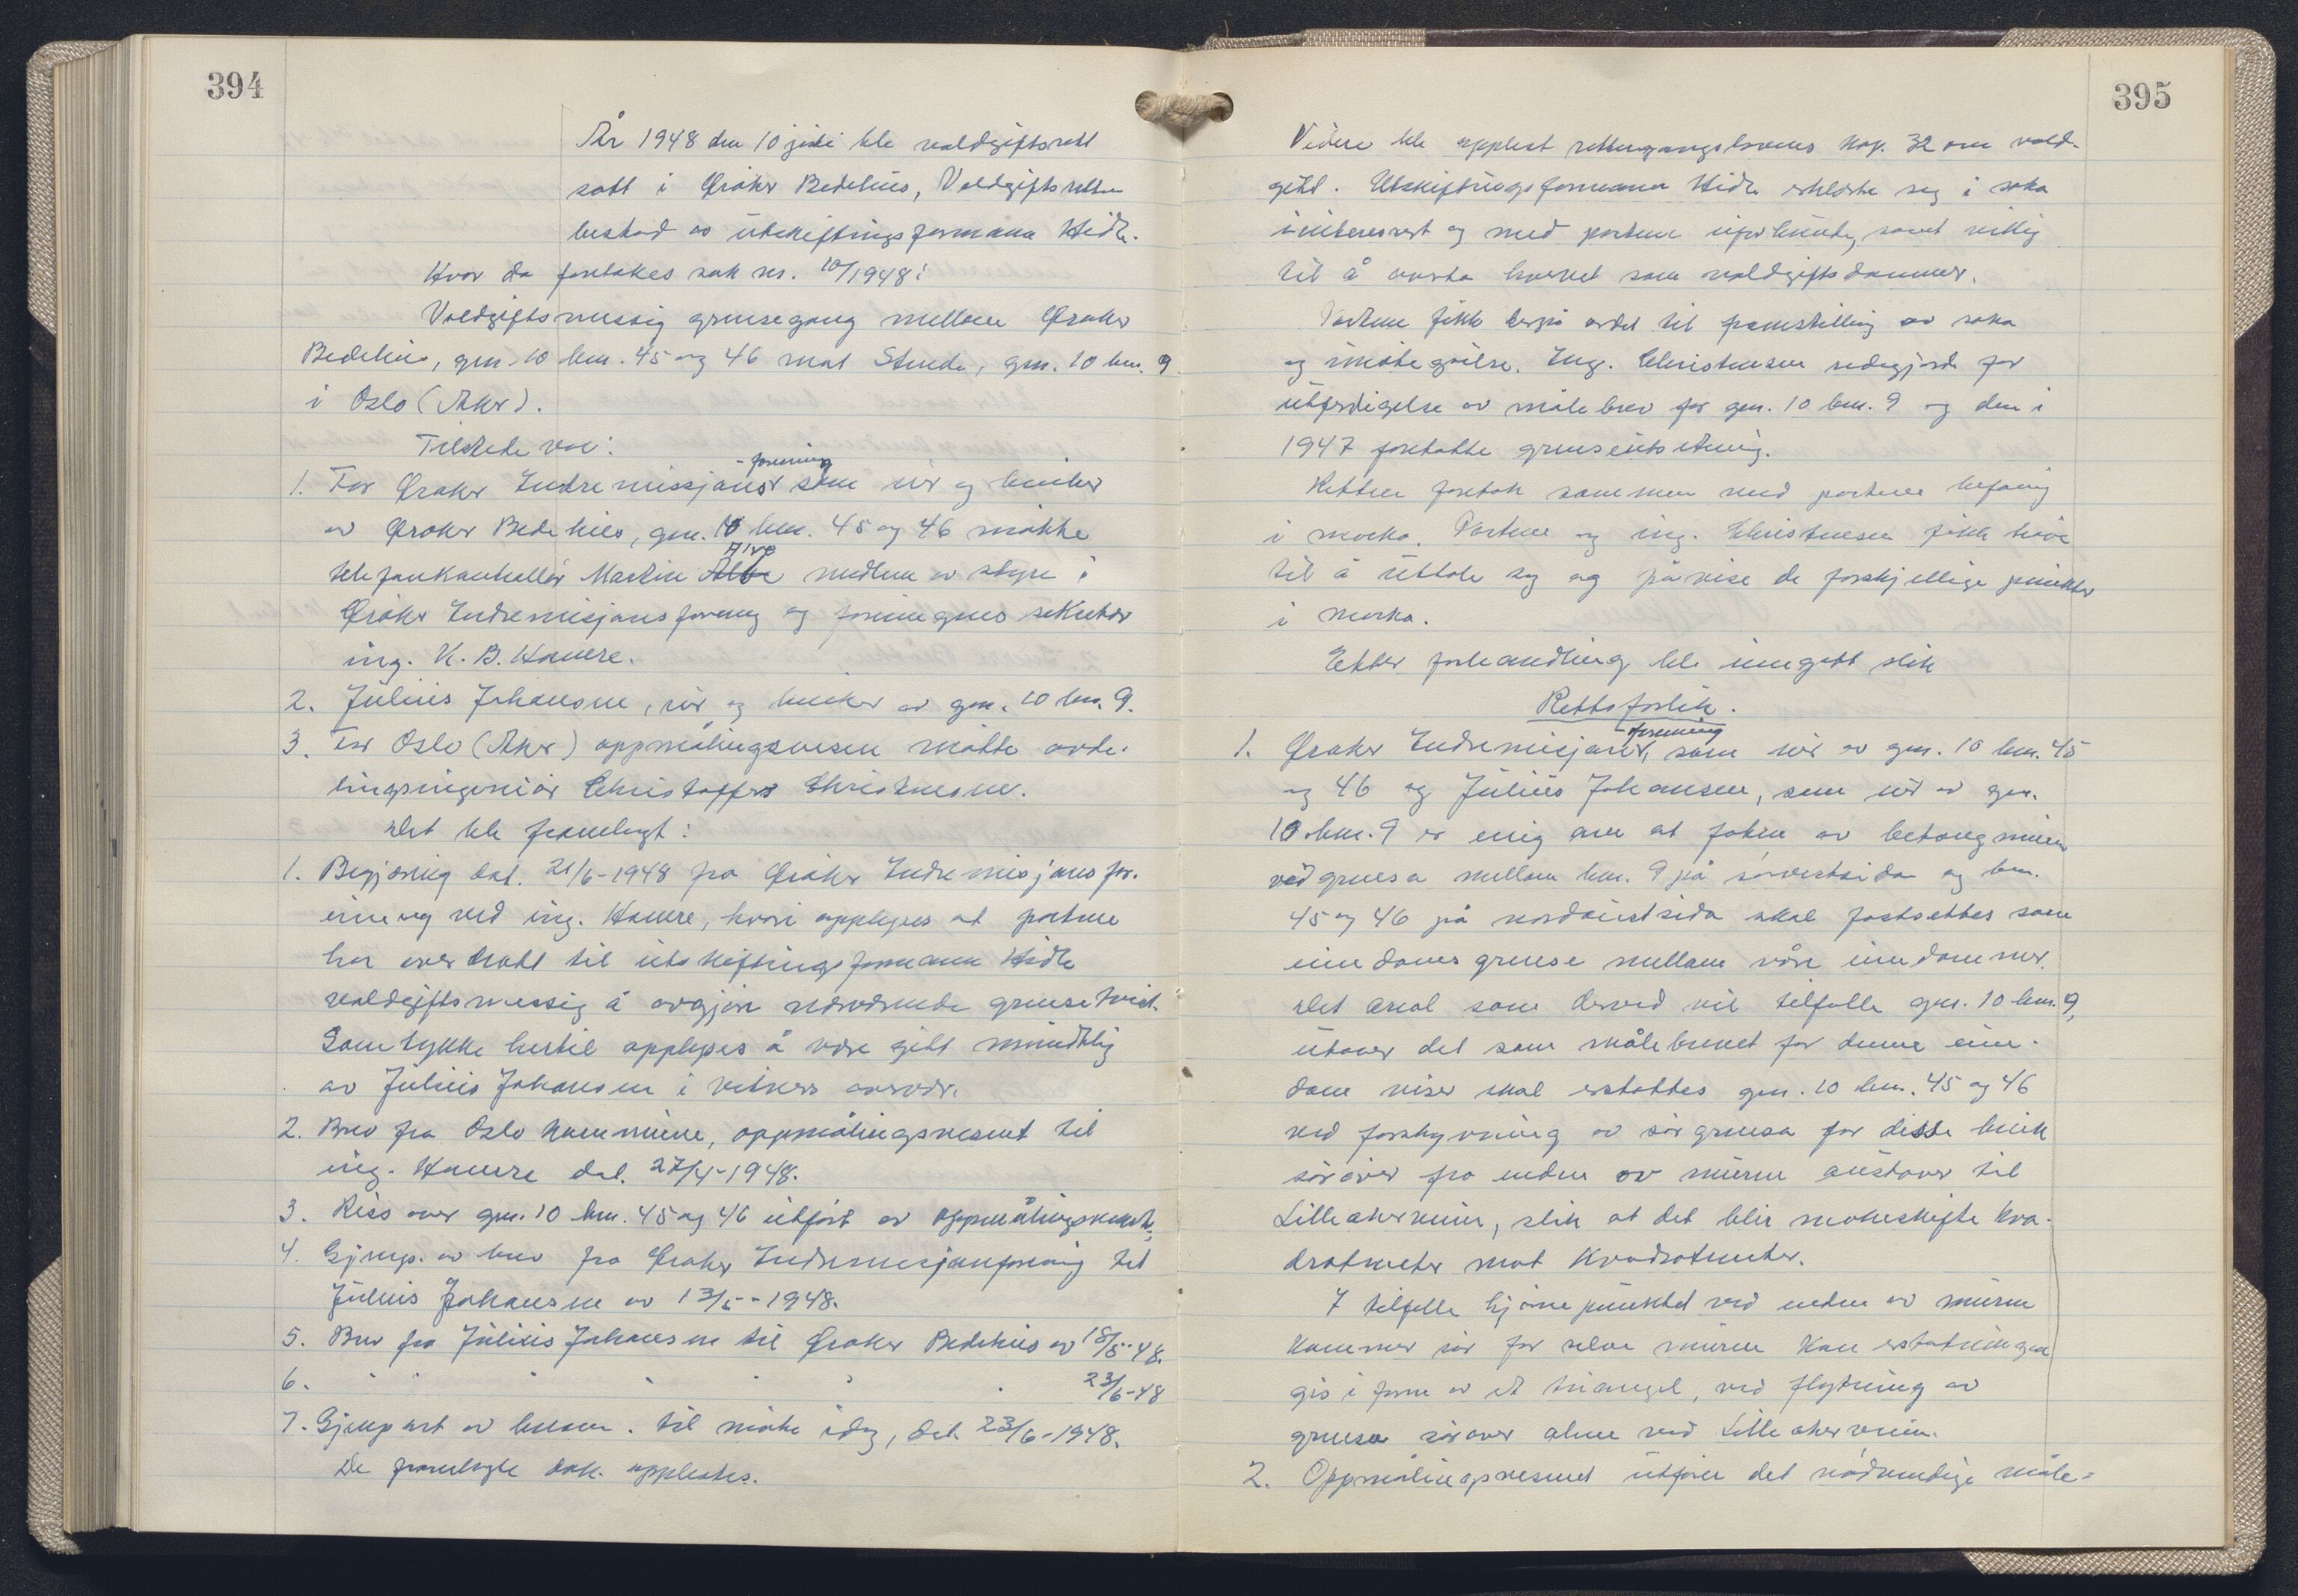 394
År 1948 den 10 juli ble voldgiftsrett
satt i Øraker Bedehus, Voldgiftsretten
bestod av utskiftningsformann Hidle.
Hvor da foretakes sak nr. 10/1948:
Voldgiftsmessig grensegang mellom Øraker
Bedehus, gnr. 10 bnr. 45 og 46 mot Stende, gnr. 10 bnr. 9
i Oslo (Aker).
Tilstede var:
- forening
1. For Øraker Indremissjons som eier og bruker
av Øraker Bedehus, gnr. 10 bnr. 45 og 46 møtte
Alve
telefonkontrollør Martin medlem av styre i
Øraker Indremisjonsforening og foreningens sekretær
ing. K. B. Havere.
2. Julius Johansen, eier og bruker av gnr. 10 bnr. 9.
3. For Oslo (Aker) oppmålingsvesen møtte avde-
lingsingeniør Christoffer Christensen.
Det ble framlagt:
1. Begjæring dat. 21/6-1948 fra Øraker Indremisjonsfor-
ening ved ing. Havere, hvori opplyses at partene
har overdratt til utskiftningsformann Hidle
voldgiftsmessig å avgjøre nærværende grensetvist.
Samtykke hertil opplyses å være gitt muntlig
av Julius Johansen i vitners overvær.
2. Brev fra Oslo kommune, oppmålingsvesenet til
ing. Havere dat. 27/4-1948.
3. Riss over gnr. 10 bnr. 45 og 46 utført av oppmålingsvesenet.
4. Gjenp. av brev fra Øraker Indremisjonsforening til
Julius Johansen av 13/5-1948.
5. Brev fra Julius Johansen til Øraker Bedehus av 18/5-48.
6. " " " " " " 23/6-48
7. Gjenpart av innkom. til møte idag, dat. 23/6-1948.
De framlagte dok. opplestes.
395
Videre ble opplest rettergangslovens kap. 32 om vold-
gift. Utskiftningsformann Hidle erklærte seg i saka
uinteressert og med partene ubeslektet, samt villig
til å motta hvervet som voldgiftsdommer.
Partene fikk derpå ordet til framstilling av saka
og imøtegåelse. Ing. Christensen redegjorde for
utferdigelse av målebrev for gnr. 10 bnr. 9 og den i
1947 foretatte grenseutsetning.
Retten foretok sammen med partene befaring
i marka. Partene og ing. Christensen fikk høve
til å uttale seg og påvise de forskjellige punkter
i marka.
Etter forhandling ble inngått slik
Rettsforlik.
- forening
1. Øraker Indremisjons, som eier av gnr. 10 bnr. 45
og 46 og Julius Johansen, som eier av gnr.
10 bnr. 9 er enig om at foten av betongmuren
ved grensa mellom bnr. 9 på sørvestsida og bnr.
45 og 46 på nordøstsida skal fastsettes som
eiendomsgrense mellom våre eiendommer.
Det areal som derved vil tilfalle gnr. 10 bnr. 9,
utover det som målebrevet for denne eien-
dom viser skal erstattes gnr. 10 bnr. 45 og 46
ved forskyvning av sørgrensa for disse bruk
sørover fra enden av muren austover til
Lilleakerveien, slik at det blir makeskifte kva-
dratmeter mot kvadratmeter.
I tilfelle hjørnepunktet ved enden av muren
kommer sør for selve muren kan erstatningen
gis i form av et triangel, ved flytning av
grensa sørover alene ved Lilleakerveien.
2. Oppmålingsvesenet utfører det nødvendige måle-